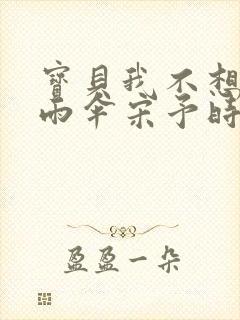 寶貝我不想
雨伞宋予時
盈盈一朵